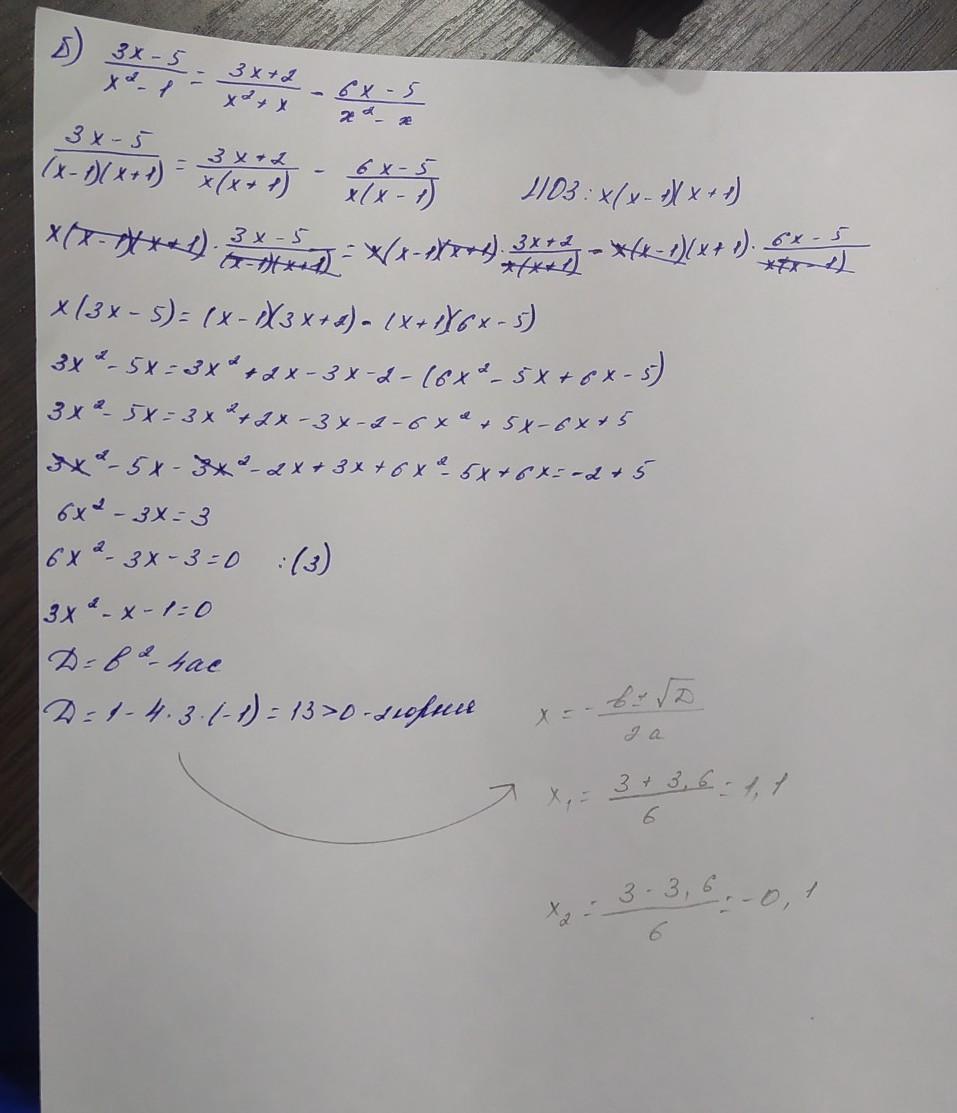 Б) (3x-5)/(x²-1) = (3x+2)/(x²+x) - (6x-5)/(x²-x)
(3x-5)/((x-1)(x+1)) = (3x+2)/(x(x+1)) - (6x-5)/(x(x-1)) НОЗ: x(x-1)(x+1)
x(x-1)(x+1) · (3x-5)/((x-1)(x+1)) = x(x-1)(x+1) · (3x+2)/(x(x+1)) - x(x-1)(x+1) · (6x-5)/(x(x-1))
x(3x-5)=(x-1)(3x+2)-(x+1)(6x-5)
3x²-5x=3x²+2x-3x-2-(6x²-5x+6x-5)
3x²-5x=3x²+2x-3x-2-6x²+5x-6x+5
3x²-5x-3x²-2x+3x+6x²-5x+6x=-2+5
6x²-3x=3
6x²-3x-3=0 :(3)
3x²-x-1=0
D=b²-4ac
D=1-4·3·(-1)=13>0-2корня
x=-(b±√D)/(2a)
x₁=(3+3,6)/6=1,1
x₂=(3-3,6)/6=-0,1